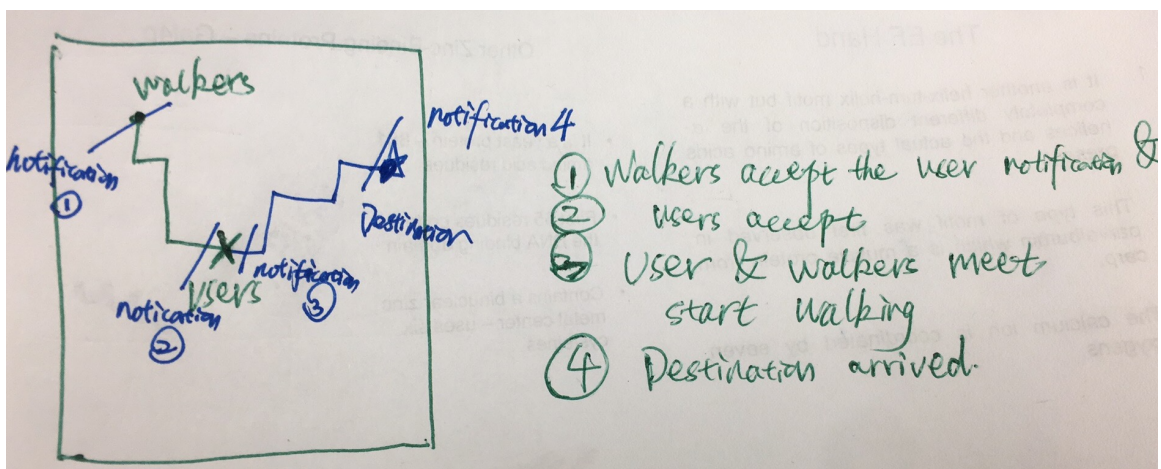 walkers
notification
①
notification 4
Destination
users
notication
②
notification
③
① Walkers accept the user notification &
② users accept
③ User & walkers meet
start walking
④ Destination arrived.